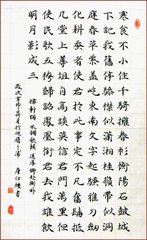 寒食不小住千騎擁春衫衡陽石鼓城
下記我舊停驂襟似瀟湘桂嶺帶似洞
庭春草紫蓋屹東南文字起騷雅刀劍
化耕蠶看使君於此事定不凡奮髯抵
几堂上尊俎自高談莫信君門萬里但
使民歌五袴歸詔鳳凰銜君去我誰飲
明月影成三
稼軒詞水調歌頭送厚卿赴衡州